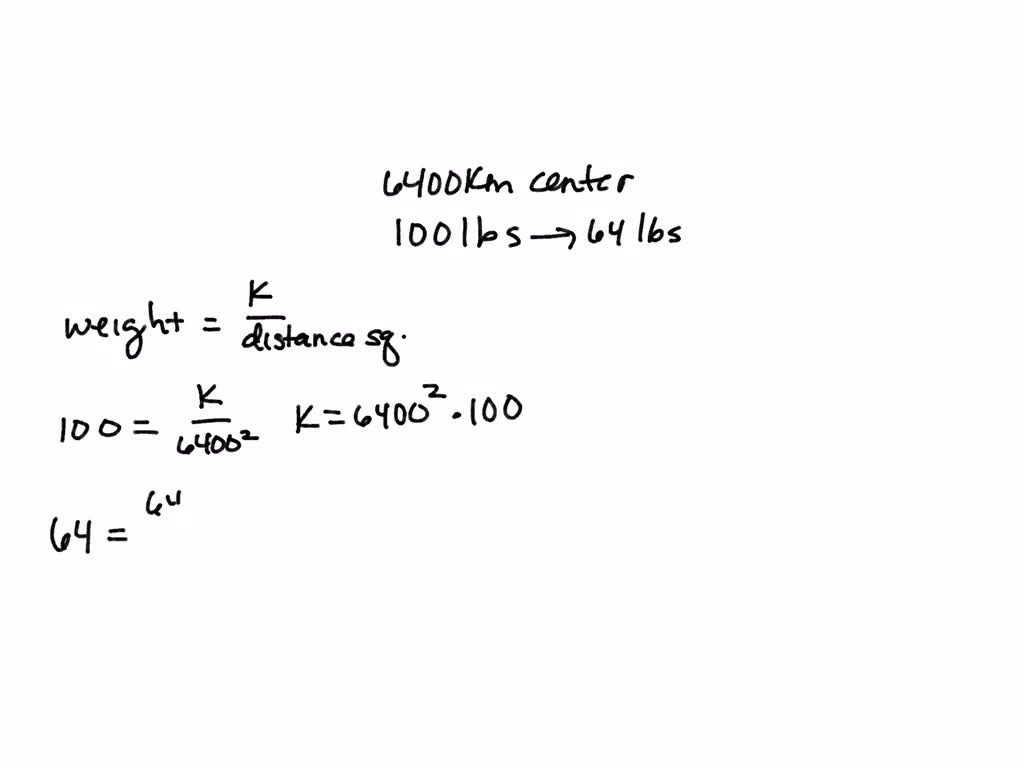 6400Km center
100 lbs → 64 lbs
weight = K / distance sq.
100 = K / 6400² K = 6400² · 100
64 = 64